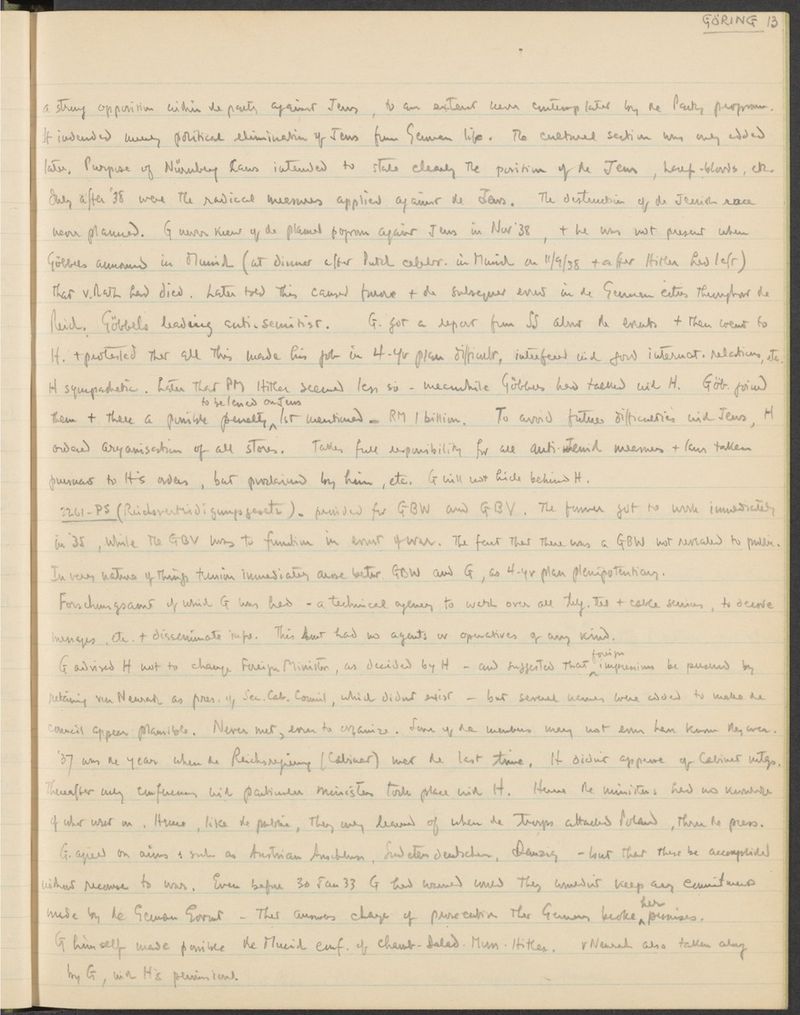 GÖRING 13
a strong opposition within the party against Jews, to an extent never contemplated by the Party program.
It intended merely political elimination of Jews from German life. The cultural section was only added
later. Purpose of Nürnberg Laws intended to state clearly the position of the Jews, half-bloods, etc.
Only after '38 were the radical measures applied against the Jews. The destruction of the Jewish race
never planned. G never knew of the planned pogrom against Jews in Nov '38, + he was not present when
Göbbels announced in Munich (at dinner after Putsch celebr. in Munich on 11/9/38 + after Hitler had left)
that v. Rath had died. Later told this caused furore + the subsequent events in the German cities throughout the
Reich. Göbbels leading anti-semitist. G. got a report from SS about the events + then went to
H. + protested that all this made his job in 4-yr plan difficult, interfered with good internat. relations, etc.
H sympathetic. Later that PM Hitler seemed less so - meanwhile Göbbels had talked with H. Göb. joined
them + there a possible penalty to be levied on Jews 1st mentioned = RM 1 billion. To avoid future difficulties with Jews, H
ordered aryanisation of all stores. Takes full responsibility for all anti-Jewish measures + laws taken
pursuant to H's orders, but proclaimed by him, etc. G will not hide behind H.
2261-PS (Reichsverteidigungsgesetz) - provided for GBW and GBV. The former got to work immediately
in '35, while the GBV was to function in event of war. The fact that there was a GBW not revealed to public.
In very nature of things tension immediately arose betw GBW and G, as 4-yr plan plenipotentiary.
Forschungsamt of which G was head - a technical agency to watch over all tlg. tel + cable services, to decode
messages etc. + disseminate info. This had no agents or operatives of any kind.
G advised H not to change Foreign Minister, as decided by H - and suggested that foreign impressions be preserved by
retaining von Neurath as pres. of Sec. Cab. Council, which didn't exist - but several names were added to make the
council appear plausible. Never met, even to organize. Some of the members may not even have known they were.
'37 was the year when the Reichsregierung (Cabinet) met the last time. H didn't approve of Cabinet mtgs.
Thereafter only conferences with particular ministers took place with H. Hence the ministers had no knowledge
of what went on. Hence, like the public, they only learned of when the troops attacked Poland, thru the press.
G. agreed on aims such as Austrian Anschluss, Sudetendeutschen, Danzig - but that these be accomplished
without recourse to war. Even before 30 Jan 33 G had warned world they wouldn't keep any commitments
made by the German Govmt - That answers charge of prosecution that Germany broke her promises.
G himself made possible the Munich conf. of Chamb-Dalad-Muss-Hitler. v Neurath also taken along
by G, with H's permission.